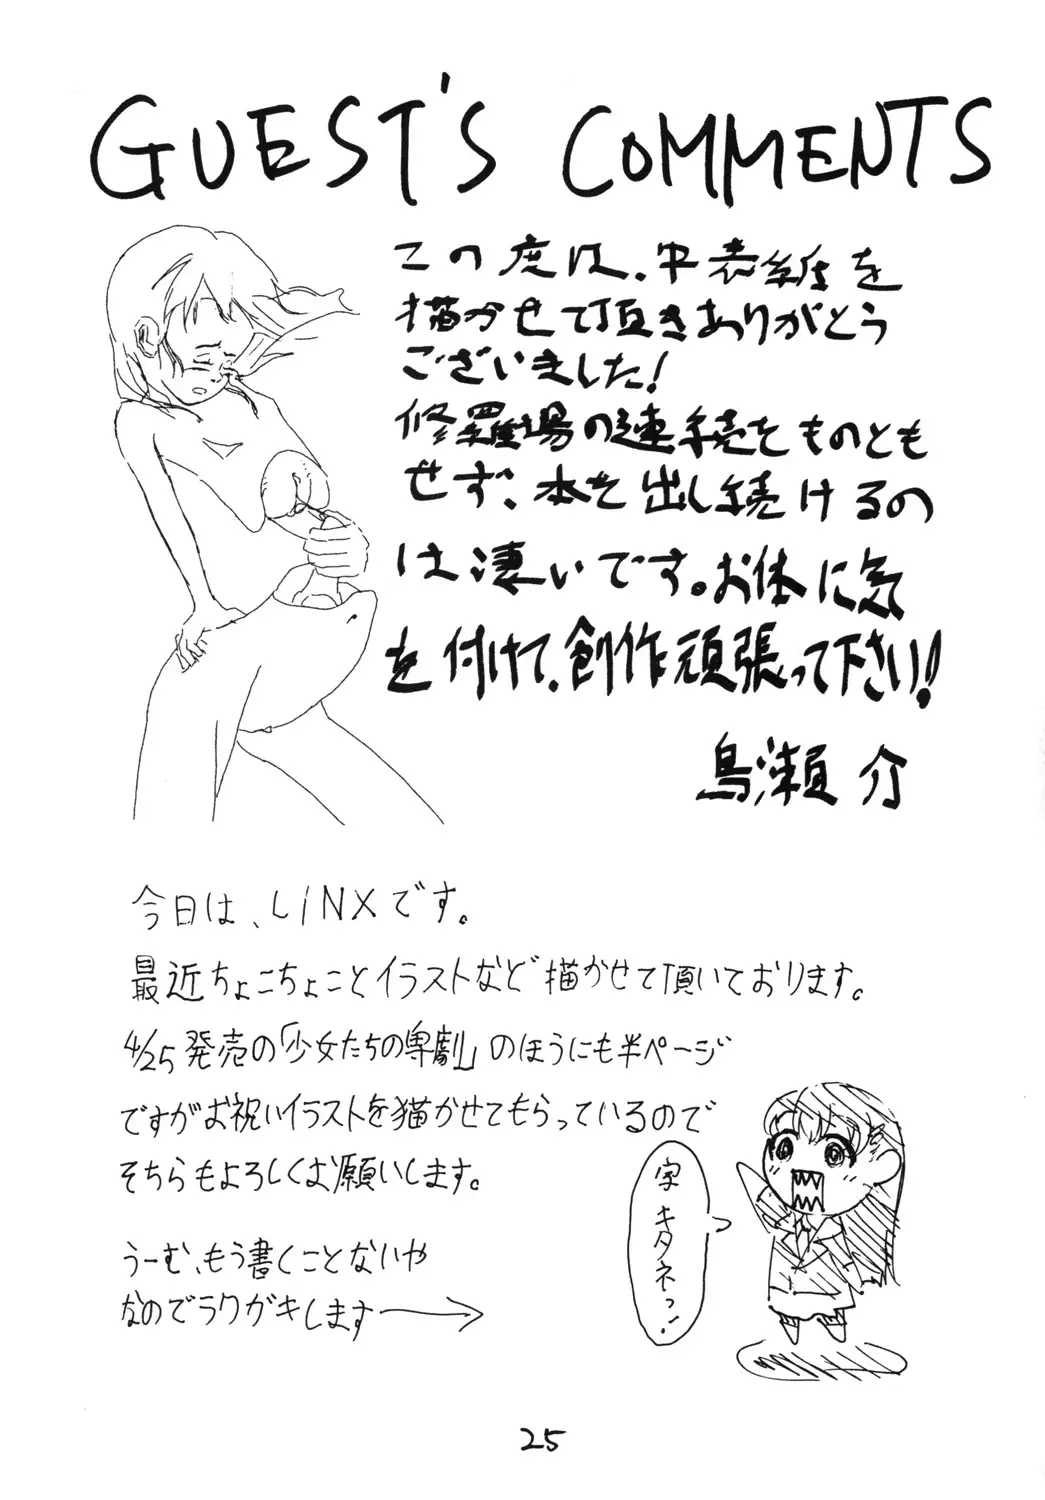 GUEST'S COMMENTS
この度は、中表紙を
描かせて頂きありがとう
ございました!
修羅場の連続をものとも
せず、本を出し続けるの
は凄いです。お体に気
を付けて、創作頑張って下さい!!
鳥瀬 介
今日は、LINXです。
最近ちょこちょことイラストなど描かせて頂いております。
4/25発売の「少女たちの専劇」のほうにも半ページ
ですがお祝いイラストを描かせてもらっているので
そちらもよろしくお願いします。
うーむ、もう書くことないや
なのでラクガキします→
字
キタネっ!
25